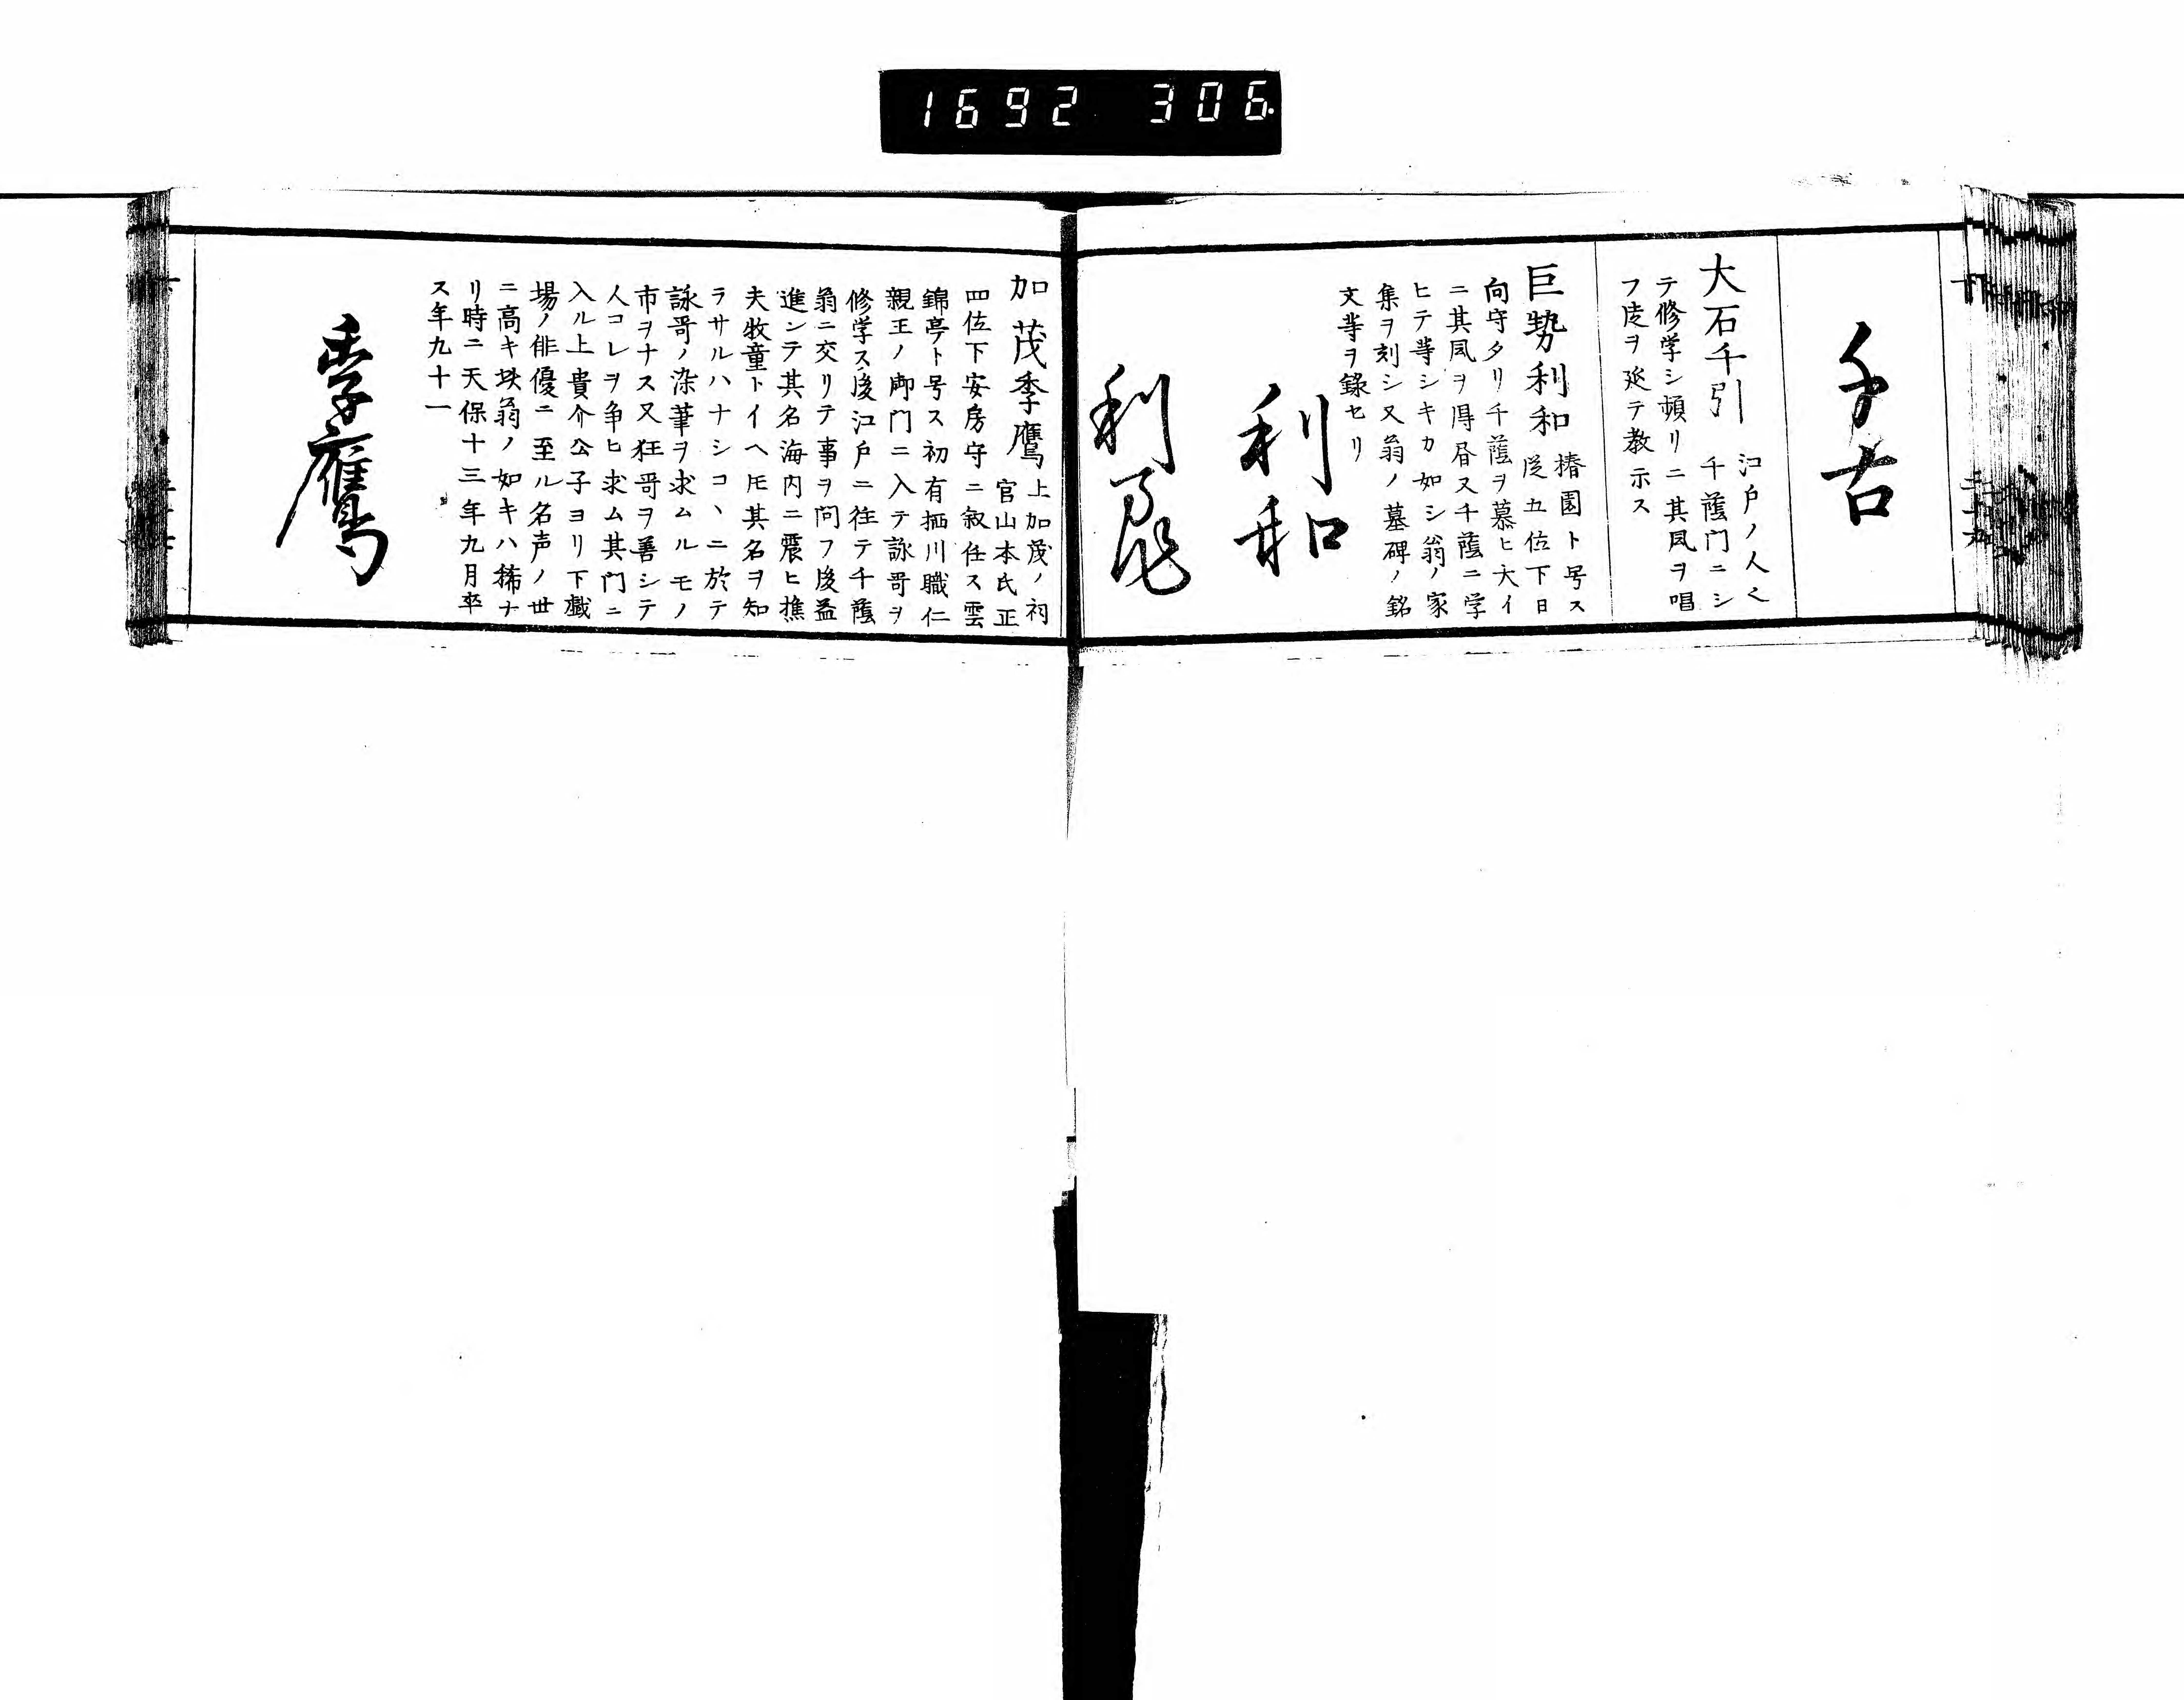 1692 306
千古
大石千引 江戸ノ人也
千蔭門ニシ
テ修学シ頻リニ其風ヲ唱
フ徒ヲ延テ教示ス
巨勢利和 椿園ト号ス
従五位下日
向守タリ千蔭ヲ慕ヒ大イ
ニ其風ヲ得昼又千蔭ニ学
ヒテ等シキカ如シ翁ノ家
集ヲ刻シ又翁ノ墓碑ノ銘
文等ヲ録セリ
利和
利
加茂季鷹 上加茂ノ祠
官山本氏正
四位下安房守ニ叙任ス雲
錦亭ト号ス初有栖川職仁
親王ノ御門ニ入テ詠哥ヲ
修学ス後江戸ニ往テ千蔭
翁ニ交リテ事ヲ問フ後益
進ンテ其名海内ニ震ヒ樵
夫牧童トイヘ𪜈其名ヲ知
ラサルハナシコヽニ於テ
詠哥ノ染筆ヲ求ムルモノ
市ヲナス又狂哥ヲ善シテ
人コレヲ争ヒ求ム其門ニ
入ル上貴介公子ヨリ下戯
場ノ俳優ニ至ル名声ノ世
ニ高キ此翁ノ如キハ稀ナ
リ時ニ天保十三年九月卒
ス年九十一
季鷹